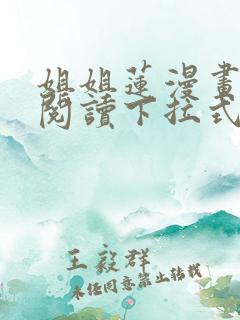 姐姐蓮漫畫
閱讀下拉式
王毅群
未经同意禁止转载